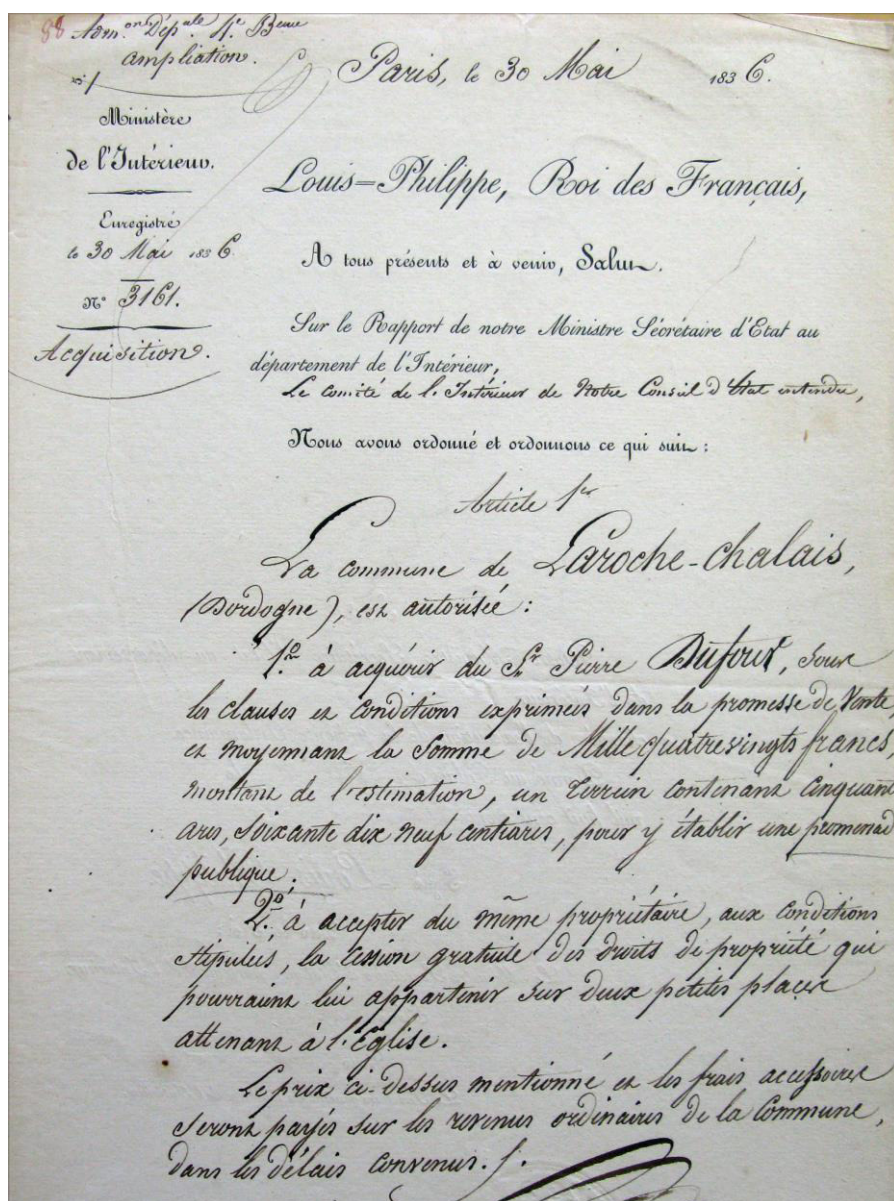 88 Adm.on Dép.ale 4.e Beau
ampliation.
Paris, le 30 Mai 1836.
Ministère
de l'Intérieur.
Enregistré
le 30 Mai 1836
N° 3161.
Acquisition.
Louis=Philippe, Roi des Français,
A tous présents et à venir, Salut.
Sur le Rapport de notre Ministre Sécrétaire d'Etat au
département de l'Intérieur,
Le comité de l'Intérieur de Notre Conseil d'Etat entendu,
Nous avons ordonné et ordonnons ce qui suit :
Article 1er
La commune de Laroche-chalais,
(Dordogne), est autorisée :
1.o à acquérir du Sr Pierre Dufour, sous
les clauses et conditions exprimées dans la promesse de Vente,
et moyennant la Somme de Mille quatrevingts francs,
montant de l'estimation, un terrein contenant cinquant
ares, soixante dix neuf centiares, pour y établir une promenad
publique.
2.o à accepter du même propriétaire, aux conditions
stipulées, la cession gratuite des droits de propriété qui
pourraient lui appartenir sur deux petites places
attenant à l'Eglise.
Le prix ci-dessus mentionné et les frais accessoires
seront payés sur les revenus ordinaires de la Commune,
dans les délais convenus.